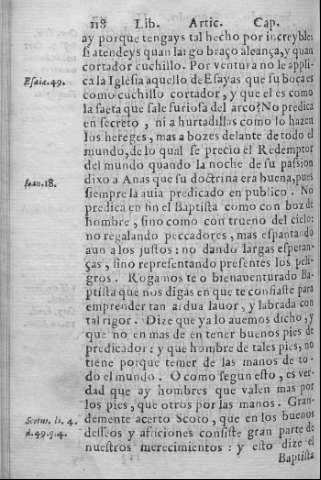 118 Lib. Artic. Cap.
ay porque tengays tal hecho por increyble:
si atendeys quan largo braço aleança, y quan
cortador cuchillo. Por ventura no le appli-
Esaiæ.49. ca la Iglesia aquello de Esayas que su boca es
como cuchillo cortador, y que el es como
la saeta que sale furiosa del arco? No predica
en secreto, ni a hurtadillas como lo hazen
los hereges, mas a bozes delante de todo el
mundo, de lo qual se precio el Redemptor
del mundo quando la noche de su passion
Ioan.18. dixo a Anas que su doctrina era buena, pues
siempre la auia predicado en publico. No
predica en fin el Baptista como con boz de
hombre, sino como con trueno del cielo:
no regalando peccadores, mas espantando
aun a los justos: no dando largas esperan-
ças, sino representando presentes los peli-
gros. Rogamos te o bienauenturado Ba-
ptista que nos digas en que te consiste para
emprender tan ardua lauor, y labrada con
tal rigor. Dize que ya lo auemos dicho, y
que no en mas de en tener buenos pies de
predicador: y que hombre de tales pies, no
tiene porque temer de las manos de to-
do el mundo. O como segun esto, es ver-
dad que ay hombres que valen mas por
los pies, que otros por las manos. Gran-
Scotus. li. 4. demente acerto Scoto, que en los buenos
d.49.q.4. desseos y afficiones consiste gran parte de
nuestros merecimientos: y esto dize el
Baptista